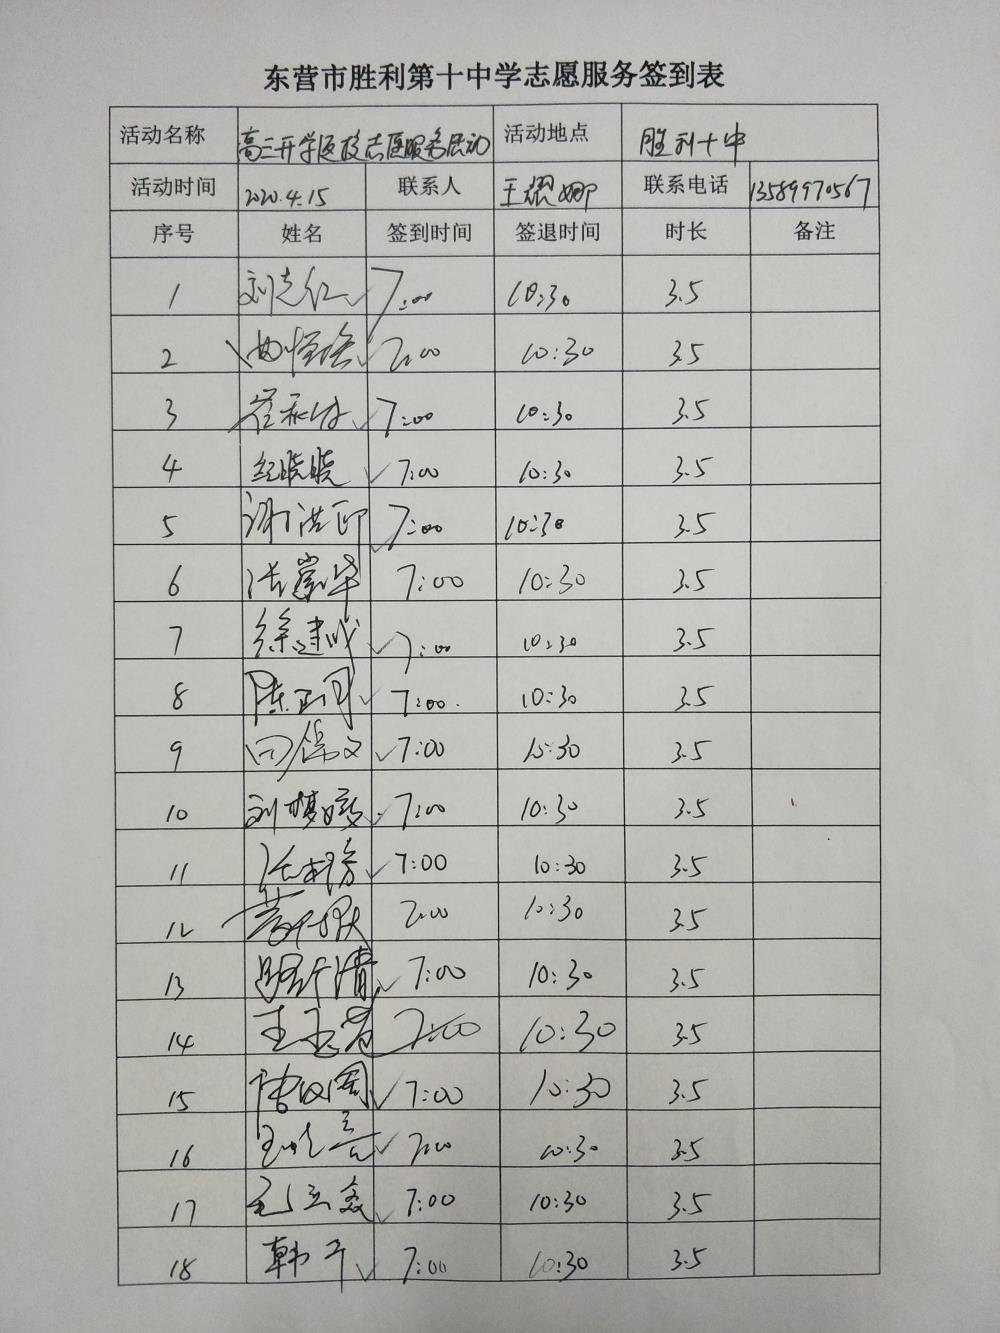 东营市胜利第十中学志愿服务签到表
活动名称 高三开学返校志愿服务活动 活动地点 胜利十中
活动时间 2020.4.15 联系人 王耀娜 联系电话 13589970567
序号 姓名 签到时间 签退时间 时长 备注
1 刘志红 7:00 10:30 3.5
2 7:00 10:30 3.5
3 7:00 10:30 3.5
4 纪晓晓 7:00 10:30 3.5
5 谢洪印 7:00 10:30 3.5
6 7:00 10:30 3.5
7 徐建成 7:00 10:30 3.5
8 陈正同 7:00 10:30 3.5
9 7:00 10:30 3.5
10 刘梦媛 7:00 10:30 3.5
11 7:00 10:30 3.5
12 7:00 10:30 3.5
13 7:00 10:30 3.5
14 7:00 10:30 3.5
15 7:00 10:30 3.5
16 王晓亮 7:00 10:30 3.5
17 7:00 10:30 3.5
18 韩子 7:00 10:30 3.5